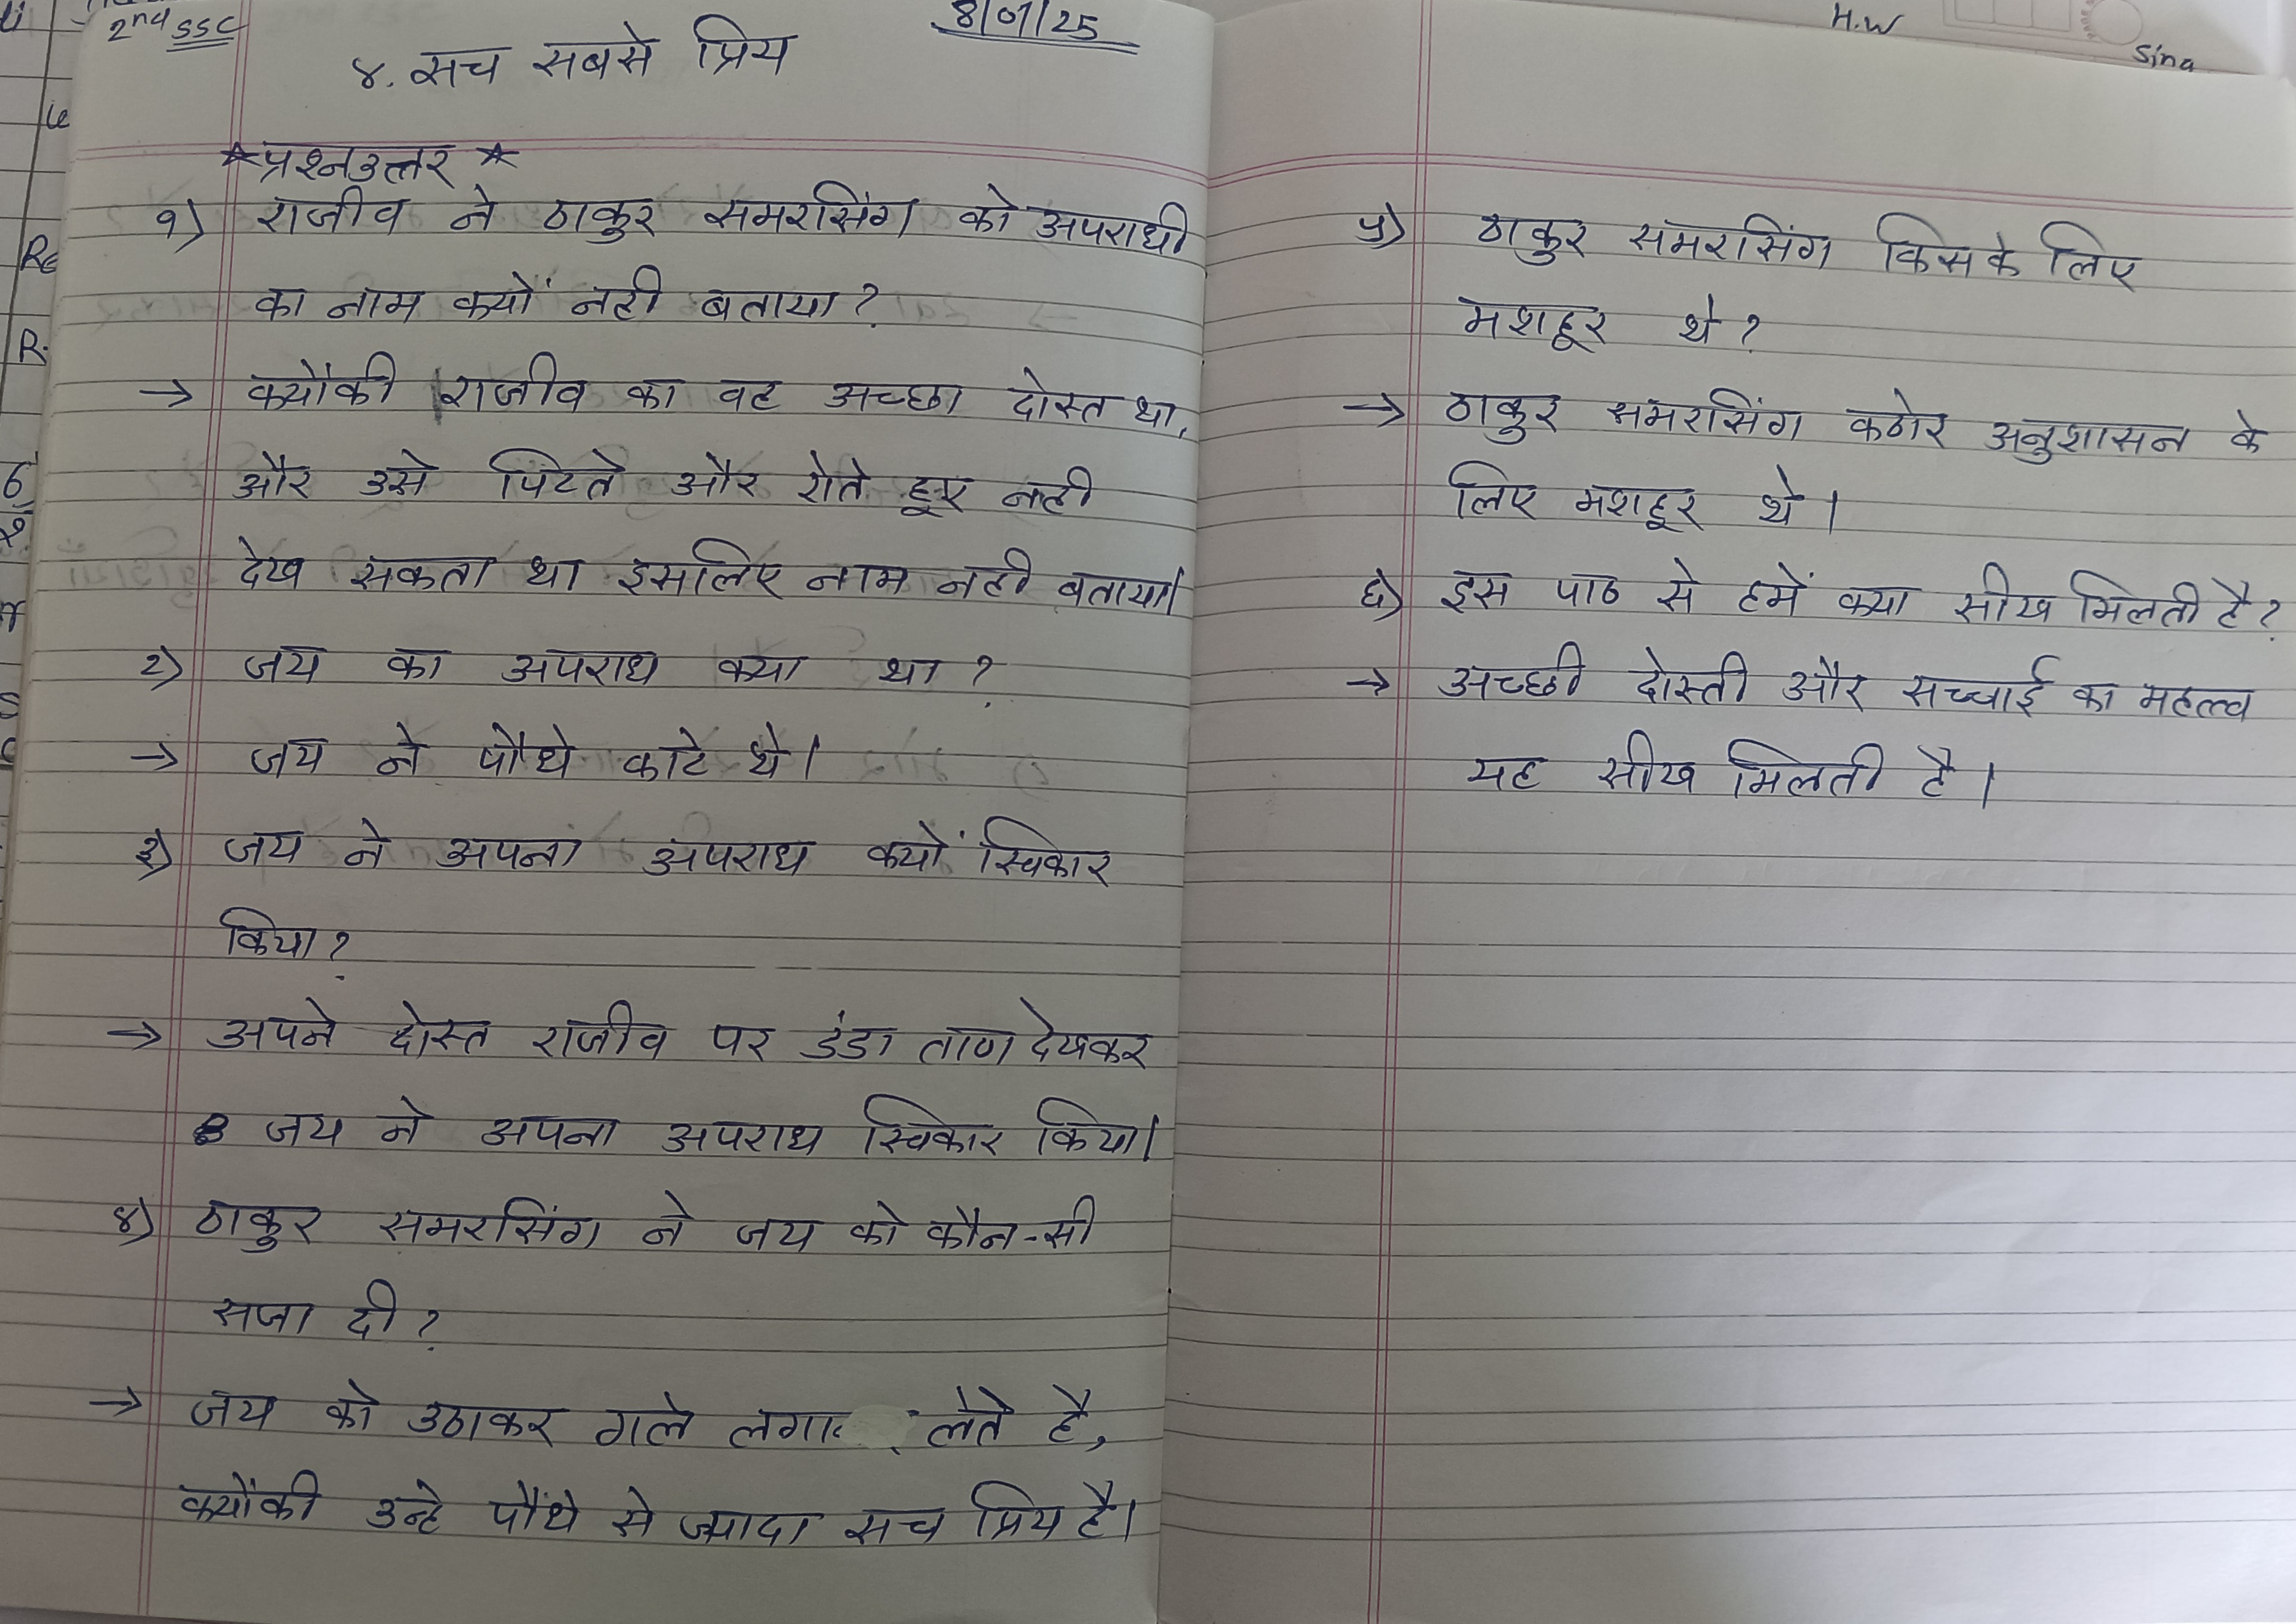 2nd SSC
8/01/25
४. सच सबसे प्रिय
* प्रश्नउत्तर *
१) राजीव ने ठाकुर समरसिंग को अपराधी
का नाम क्यों नही बताया?
→ क्योंकी राजीव का वह अच्छा दोस्त था,
और उसे पिटते और रोते हूए नही
देख सकता था इसलिए नाम नही बताया।
२) जय का अपराध क्या था ?
→ जय ने पौधे काटे थे।
३) जय ने अपना अपराध क्यों स्विकार
किया?
→ अपने दोस्त राजीव पर डंडा ताण देखकर
जय ने अपना अपराध स्विकार किया।
४) ठाकुर समरसिंग ने जय को कौन-सी
सजा दी?
→ जय को उठाकर गले लगा लेते है,
क्योंकी उन्हे पौंधे से ज्यादा सच प्रिय है।
H.W
Sing
५) ठाकुर समरसिंग किसके लिए
मशहूर थे?
→ ठाकुर समरसिंग कठोर अनुशासन के
लिए मशहूर थे।
६) इस पाठ से हमें क्या सीख मिलती है?
→ अच्छी दोस्ती और सच्चाई का महत्व
यह सीख मिलती है।